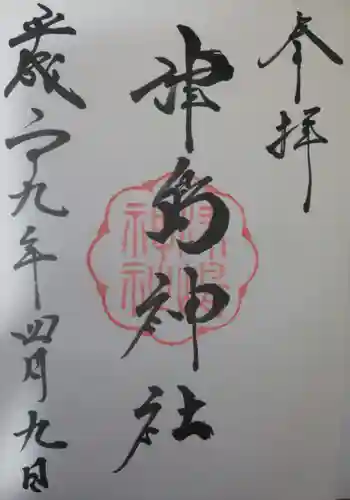 奉拝
津島神社
平成二十九年四月九日